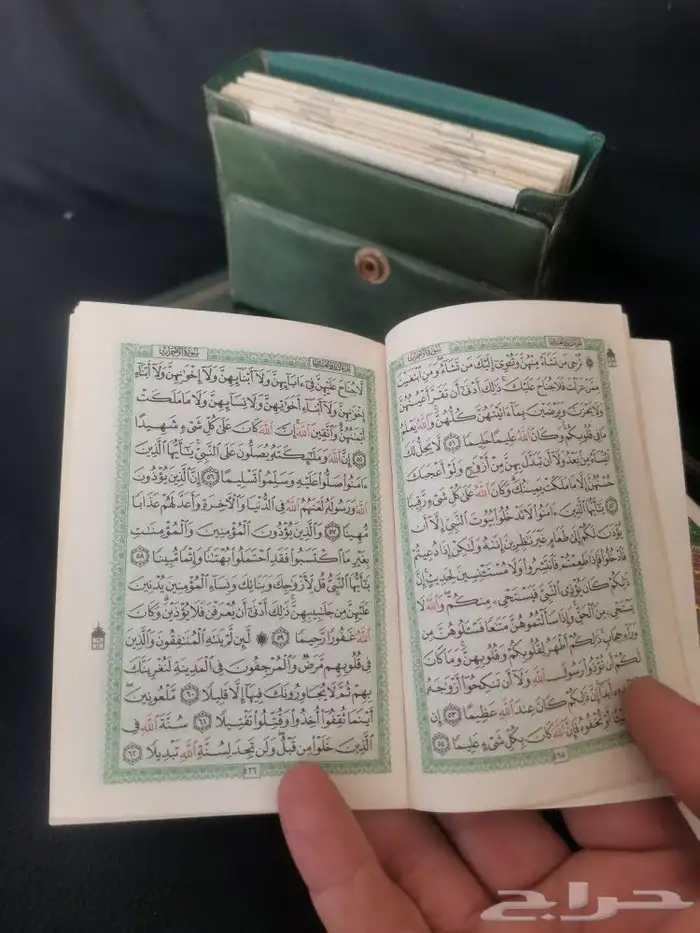 الجزء الثاني والعشرون سورة الأحزاب
۞ تُرْجِى مَن تَشَآءُ مِنْهُنَّ وَتُـْٔوِىٓ إِلَيْكَ مَن تَشَآءُ وَمَنِ ٱبْتَغَيْتَ
مِمَّنْ عَزَلْتَ فَلَا جُنَاحَ عَلَيْكَ ذَٰلِكَ أَدْنَىٰٓ أَن تَقَرَّ أَعْيُنُهُنَّ
وَلَا يَحْزَنَّ وَيَرْضَيْنَ بِمَآ ءَاتَيْتَهُنَّ كُلُّهُنَّ وَٱللَّهُ يَعْلَمُ
مَا فِى قُلُوبِكُمْ وَكَانَ ٱللَّهُ عَلِيمًا حَلِيمًا ٥١ لَّا يَحِلُّ لَكَ
ٱلنِّسَآءُ مِنۢ بَعْدُ وَلَآ أَن تَبَدَّلَ بِهِنَّ مِنْ أَزْوَٰجٍ وَلَوْ أَعْجَبَكَ
حُسْنُهُنَّ إِلَّا مَا مَلَكَتْ يَمِينُكَ وَكَانَ ٱللَّهُ عَلَىٰ كُلِّ شَىْءٍ رَّقِيبًا
٥٢ يَٰٓأَيُّهَا ٱلَّذِينَ ءَامَنُوا۟ لَا تَدْخُلُوا۟ بُيُوتَ ٱلنَّبِىِّ إِلَّآ أَن
يُؤْذَنَ لَكُمْ إِلَىٰ طَعَامٍ غَيْرَ نَٰظِرِينَ إِنَىٰهُ وَلَٰكِنْ إِذَا دُعِيتُمْ
فَٱدْخُلُوا۟ فَإِذَا طَعِمْتُمْ فَٱنتَشِرُوا۟ وَلَا مُسْتَـْٔنِسِينَ لِحَدِيثٍ إِنَّ
ذَٰلِكُمْ كَانَ يُؤْذِى ٱلنَّبِىَّ فَيَسْتَحْىِۦ مِنكُمْ وَٱللَّهُ لَا
يَسْتَحْىِۦ مِنَ ٱلْحَقِّ وَإِذَا سَأَلْتُمُوهُنَّ مَتَٰعًا فَسْـَٔلُوهُنَّ مِن
وَرَآءِ حِجَابٍ ذَٰلِكُمْ أَطْهَرُ لِقُلُوبِكُمْ وَقُلُوبِهِنَّ وَمَا كَانَ
لَكُمْ أَن تُؤْذُوا۟ رَسُولَ ٱللَّهِ وَلَآ أَن تَنكِحُوٓا۟ أَزْوَٰجَهُۥ
أَبَدًا إِنَّ ذَٰلِكُمْ كَانَ عِندَ ٱللَّهِ عَظِيمًا ٥٣ إِن
أَوْ تُخْفُوهُ فَإِنَّ ٱللَّهَ كَانَ بِكُلِّ شَىْءٍ عَلِيمًا ٥٤
٤٢٥
الجزء الثاني والعشرون سورة الأحزاب
لَّا جُنَاحَ عَلَيْهِنَّ فِىٓ ءَابَآئِهِنَّ وَلَآ أَبْنَآئِهِنَّ وَلَآ إِخْوَٰنِهِنَّ وَلَآ أَبْنَآءِ
إِخْوَٰنِهِنَّ وَلَآ أَبْنَآءِ أَخَوَٰتِهِنَّ وَلَا نِسَآئِهِنَّ وَلَا مَا مَلَكَتْ
أَيْمَٰنُهُنَّ وَٱتَّقِينَ ٱللَّهَ إِنَّ ٱللَّهَ كَانَ عَلَىٰ كُلِّ شَىْءٍ شَهِيدًا
٥٥ إِنَّ ٱللَّهَ وَمَلَٰٓئِكَتَهُۥ يُصَلُّونَ عَلَى ٱلنَّبِىِّ يَٰٓأَيُّهَا ٱلَّذِينَ
ءَامَنُوا۟ صَلُّوا۟ عَلَيْهِ وَسَلِّمُوا۟ تَسْلِيمًا ٥٦ إِنَّ ٱلَّذِينَ يُؤْذُونَ
ٱللَّهَ وَرَسُولَهُۥ لَعَنَهُمُ ٱللَّهُ فِى ٱلدُّنْيَا وَٱلْـَٔاخِرَةِ وَأَعَدَّ لَهُمْ عَذَابًا
مُّهِينًا ٥٧ وَٱلَّذِينَ يُؤْذُونَ ٱلْمُؤْمِنِينَ وَٱلْمُؤْمِنَٰتِ
بِغَيْرِ مَا ٱكْتَسَبُوا۟ فَقَدِ ٱحْتَمَلُوا۟ بُهْتَٰنًا وَإِثْمًا مُّبِينًا ٥٨
يَٰٓأَيُّهَا ٱلنَّبِىُّ قُل لِّأَزْوَٰجِكَ وَبَنَاتِكَ وَنِسَآءِ ٱلْمُؤْمِنِينَ يُدْنِينَ
عَلَيْهِنَّ مِن جَلَٰبِيبِهِنَّ ذَٰلِكَ أَدْنَىٰٓ أَن يُعْرَفْنَ فَلَا يُؤْذَيْنَ وَكَانَ
ٱللَّهُ غَفُورًا رَّحِيمًا ٥٩ ۞ لَّئِن لَّمْ يَنتَهِ ٱلْمُنَٰفِقُونَ وَٱلَّذِينَ
فِى قُلُوبِهِم مَّرَضٌ وَٱلْمُرْجِفُونَ فِى ٱلْمَدِينَةِ لَنُغْرِيَنَّكَ
بِهِمْ ثُمَّ لَا يُجَاوِرُونَكَ فِيهَآ إِلَّا قَلِيلًا ٦٠ مَّلْعُونِينَ
أَيْنَمَا ثُقِفُوٓا۟ أُخِذُوا۟ وَقُتِّلُوا۟ تَقْتِيلًا ٦١ سُنَّةَ ٱللَّهِ فِى
ٱلَّذِينَ خَلَوْا۟ مِن قَبْلُ وَلَن تَجِدَ لِسُنَّةِ ٱللَّهِ تَبْدِيلًا ٦٢
٤٢٦
حراج